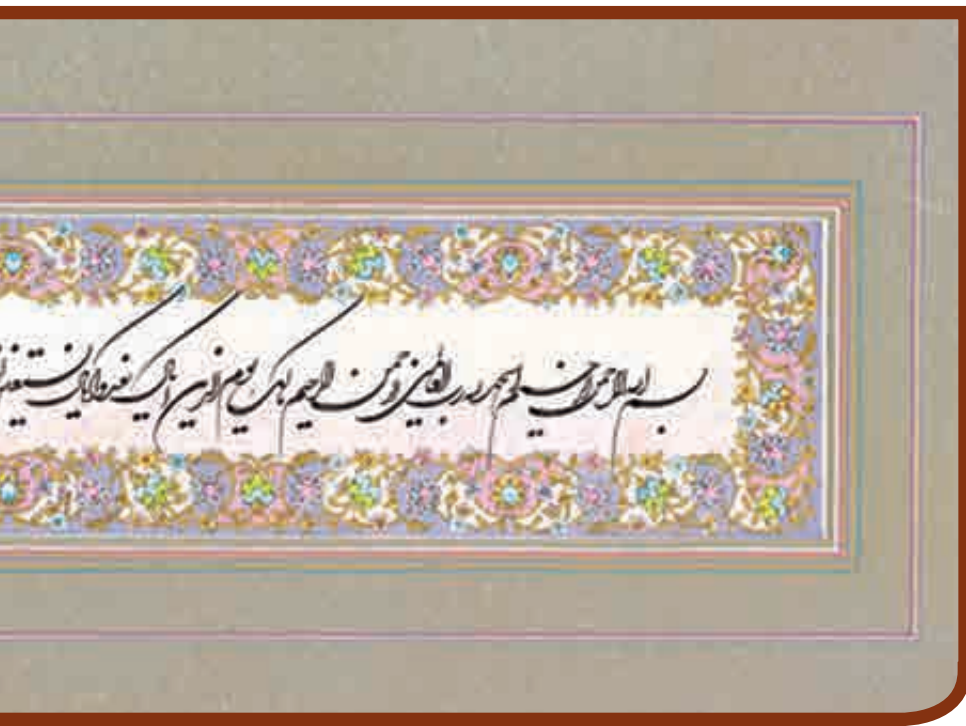 بسم الله الرحمن الرحیم الحمد لله رب العالمین الرحمن الرحیم مالک یوم الدین ایاک نعبد و ایاک نستعین